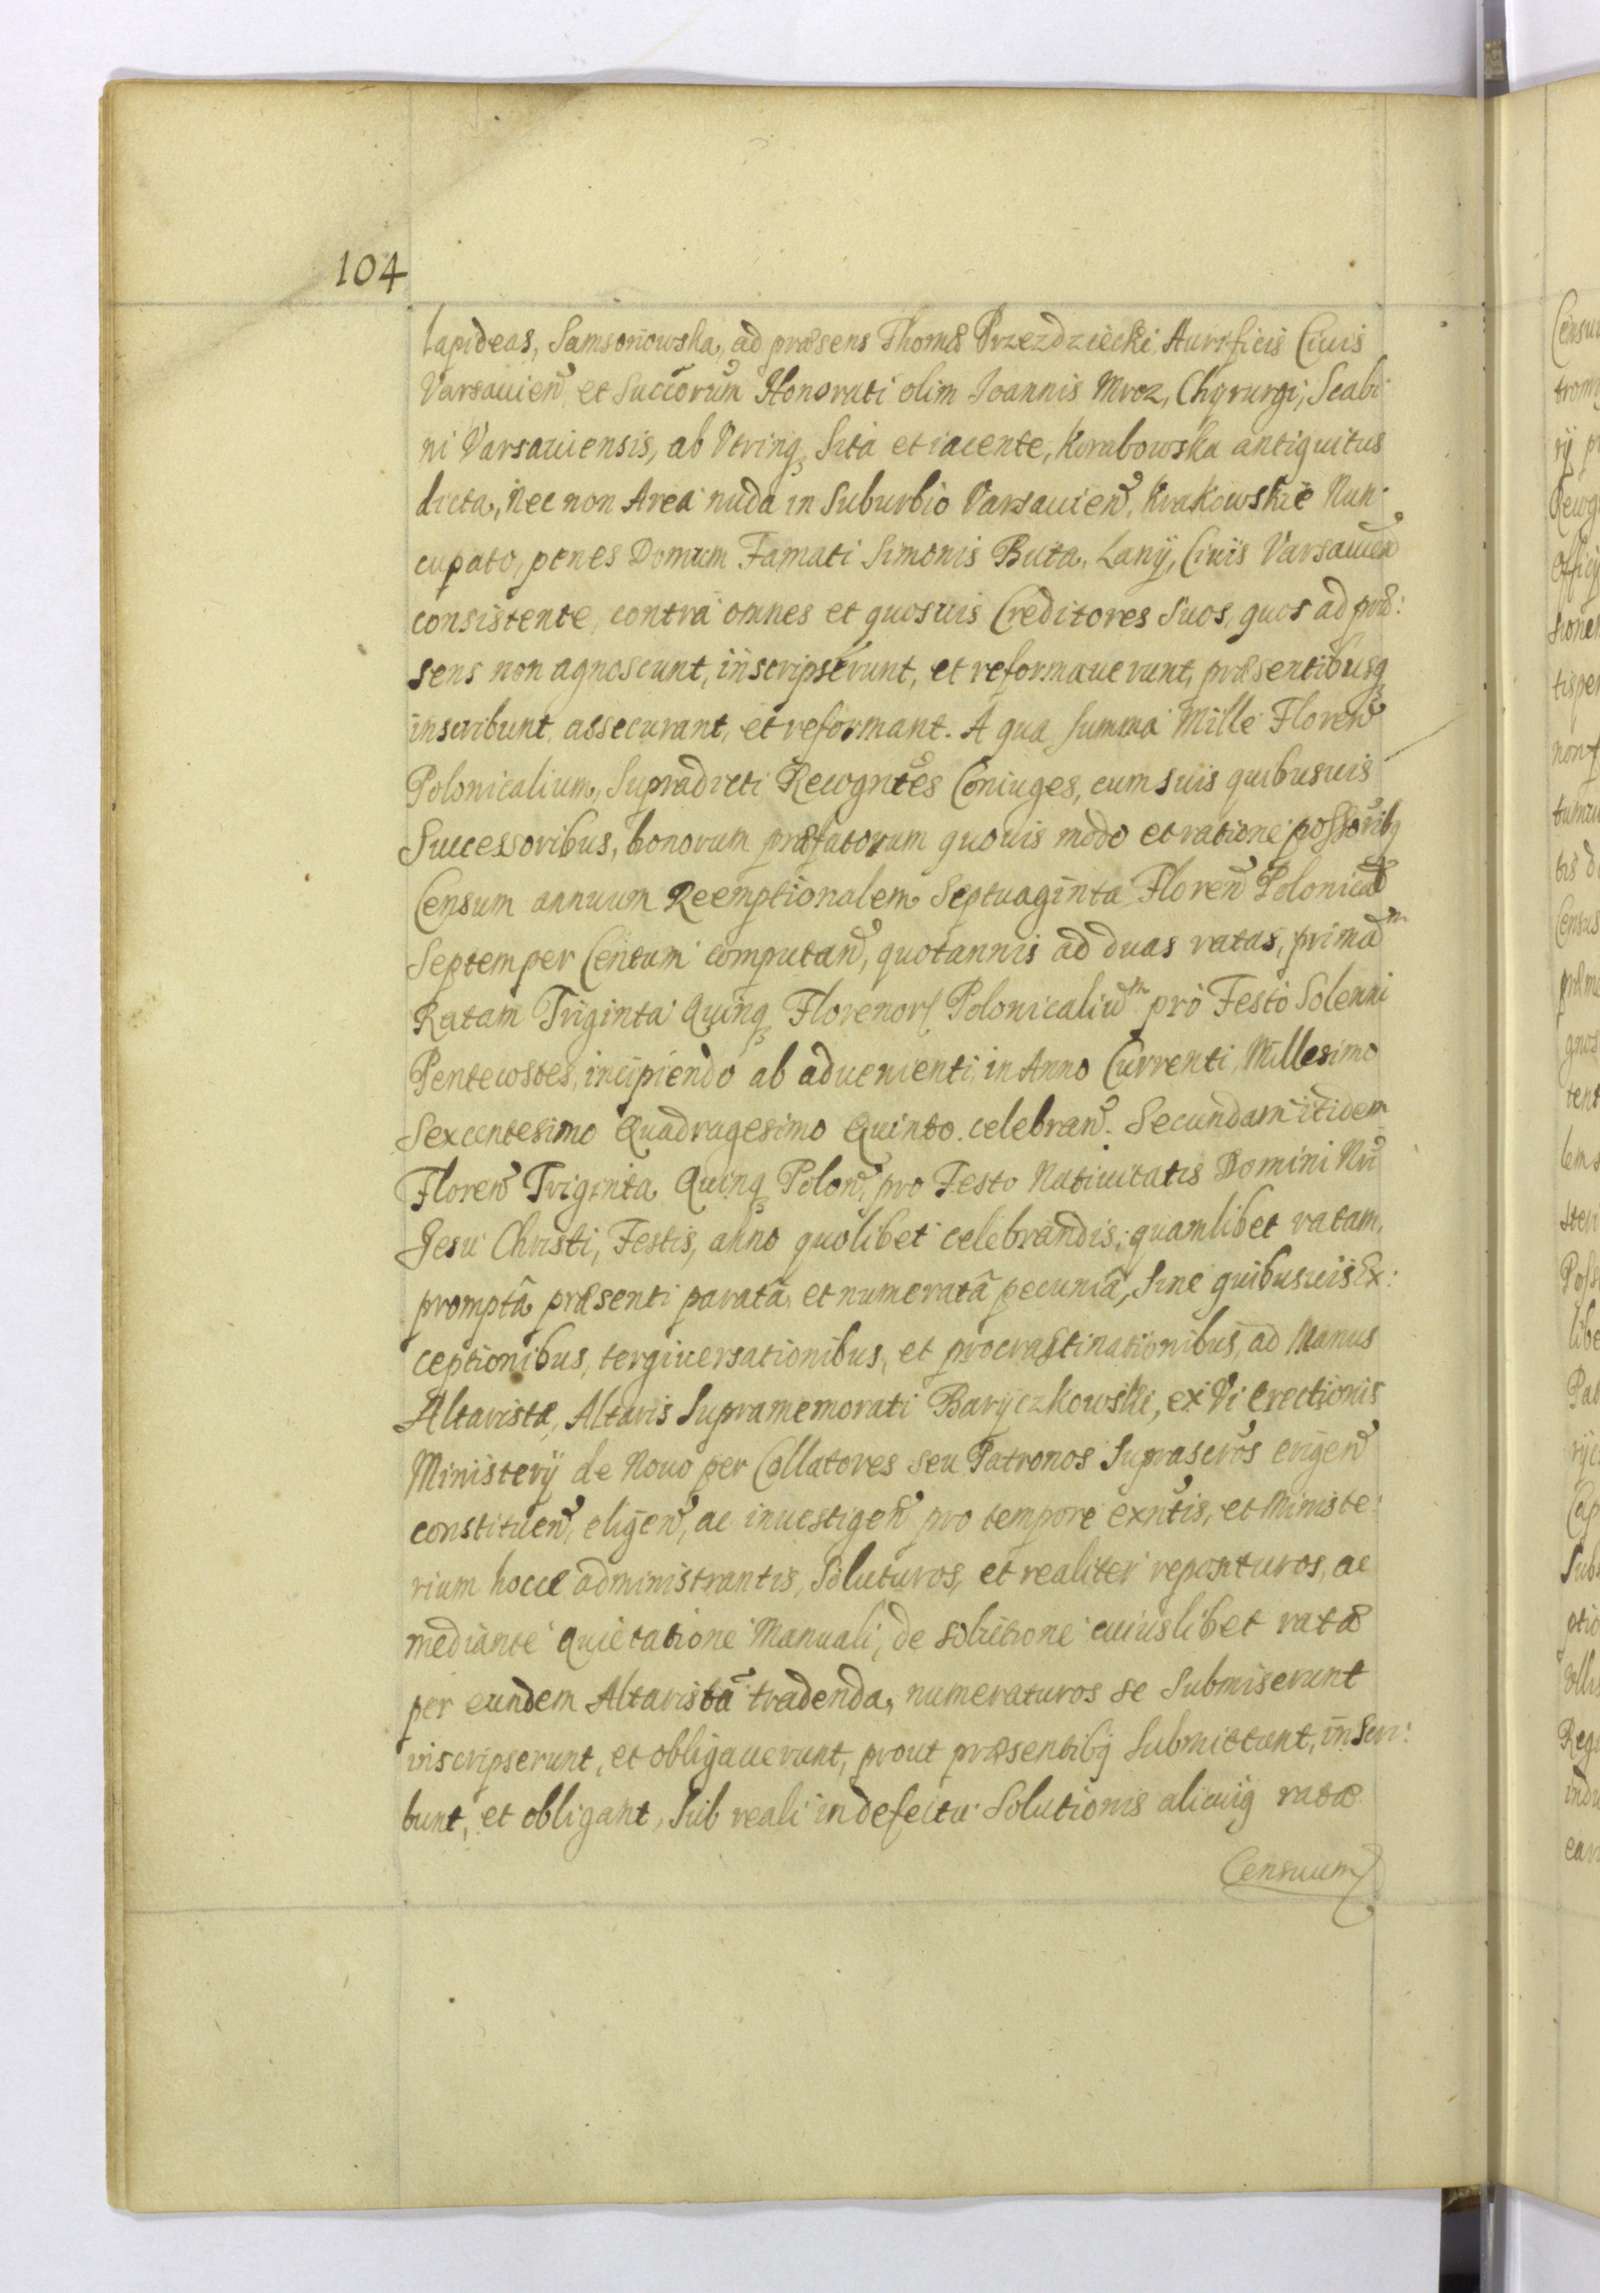 104
lapideas, Samsonowska, ad præsens Thomæ Przezdziecki Aurificis Ciuis
Varsauień et Succorum Honorati olim Ioannis Mroz, Chyrurgi, Scabi:
ni Varsauiensis, ab Vtrinq, Sita et iacente, Korabowska antiquitus
dicta, Nec non Area nuda in Suburbio Varsauień, Krakowskie Nun:
cupato, penes Domum Famati Simonis Buta, Lanÿ, Ciuis Varsauień
consistente, contra omnes et quosuis Creditores Suos, quos ad præ:
sens non agnoscunt, inscripserunt, et reformauerunt, præsentibusq
inscribunt, assecurant, et reformant. A qua summa Mille Floreń
Polonicalium, Supradicti Recogntes Coniuges, cum suis quibusuis
Successoribus, bonorum præfatorum quouis modo et ratione possoribq
Censum annuum Reemptionalem Septuaginta Floreń Polonical
Septem per Centum computań, quotannis ad duas ratas, primam
Ratam Triginta Quinq Florenor Polonicalium pro Festo Solenni
Pentecostes, incipiendo ab aduenienti in Anno Currenti, Millesimo
Sexcentesimo Quadragesimo Quinto celebrań. Secundam itidem
Floreń Triginta Quinq Poloń, pro Festo Natiuitatis Domini Nri
Jesu Christi, Festis, anno quolibet celebrandis; quamlibet ratam,
promptâ præsenti paratâ, et numeratâ pecuniâ, Sine quibusuis Ex:
ceptionibus, tergiuersationibus, et procrastinationibus, ad Manus
Altaristæ, Altaris Supramemorati Baryczkowskie, ex Vi Erectionis
Ministerÿ de Nouo per Collatores seu Patronos Suprascros erigeń
constitueń, eligeń, ac inuestigeń pro tempore exntis, et Ministe:
rium hocce administrantis, Soluturos, et realiter reponturos, ac
mediante Quietatione Manuali, de solutione cuiuslibet ratæ
per eundem Altaristã tradenda, numeraturos se Submiserunt
inscripserunt, et obligauerunt, prout præsentibq Submittunt, inscri:
bunt, et obligant, Sub reali in defectu Solutionis alicuiq ratæ
Censuum